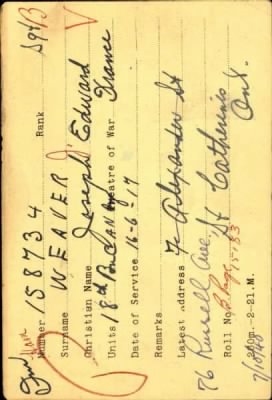 Number 158734 Rank Sgt
Surname WEAVER
Christian Name Joseph Edward
Units 18th Bn CAN Theatre of War France
Date of Service 16-6-17
Remarks
Latest Address 7 Alexander St
76 Russell Ave., St Catherines
Ont.
Roll No. B Page 15183
200m.-2-21.M.